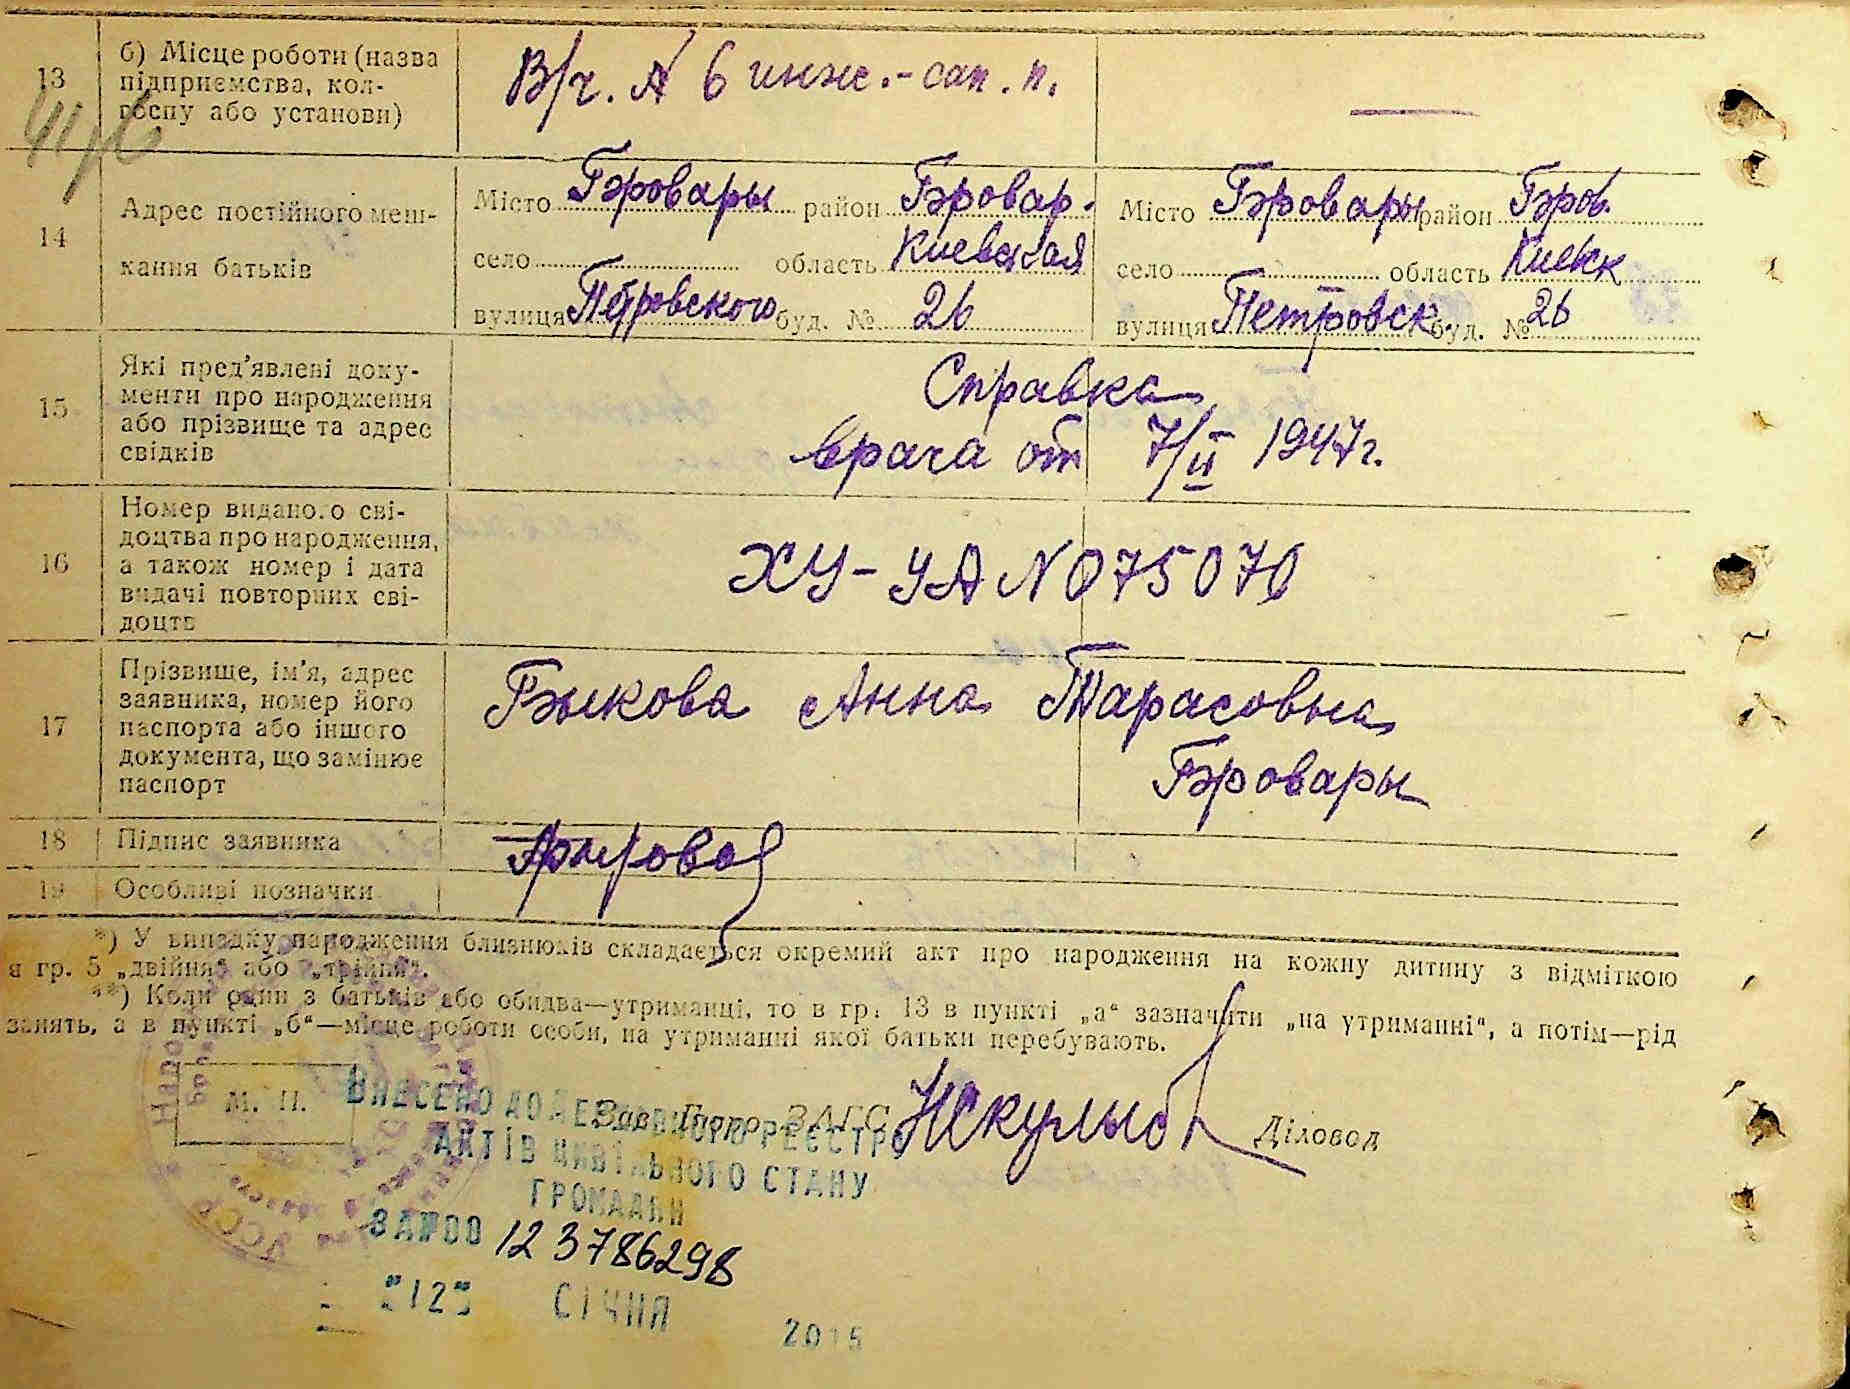 13
б) Місце роботи (назва
підприємства, кол-
госпу або установи)
В/ч. А 6 инж.-сап. п.
14
Адрес постійного меш-
кання батьків
Місто Бровары район Бровар.
село область Киевская
вулиця Петровского буд. № 26
Місто Бровары район Бров.
село область
вулиця Петровск. буд. № 26
15
Які пред'явлені доку-
менти про народження
або прізвище та адрес
свідків
Справка
врача от 7/II 1947г.
16
Номер виданого сві-
доцтва про народження,
а також номер і дата
видачі повторних сві-
доцтв
ХУ-УА N 075076
17
Прізвище, ім'я, адрес
заявника, номер його
паспорта або іншого
документа, що замінює
паспорт
Быкова Анна Тарасовна
Бровары
18
Підпис заявника
19
Особливі позначки
*) У випадку народження близнюків складається окремий акт про народження на кожну дитину з відміткою
в гр. 5 „двійня" або „трійня".
**) Коли один з батьків або обидва—утриманці, то в гр. 13 в пункті „а" зазначити „на утриманні", а потім—рід
занять, а в пункті „б"—місце роботи особи, на утриманні якої батьки перебувають.
М. П.
Зав. Бюро ЗАГС
Діловод
ВНЕСЕНО ДО ДЕРЖАВНОГО РЕЄСТРУ
АКТІВ ЦИВІЛЬНОГО СТАНУ
ГРОМАДЯН
ЗА №00 123786298
"12" СІЧНЯ 2015